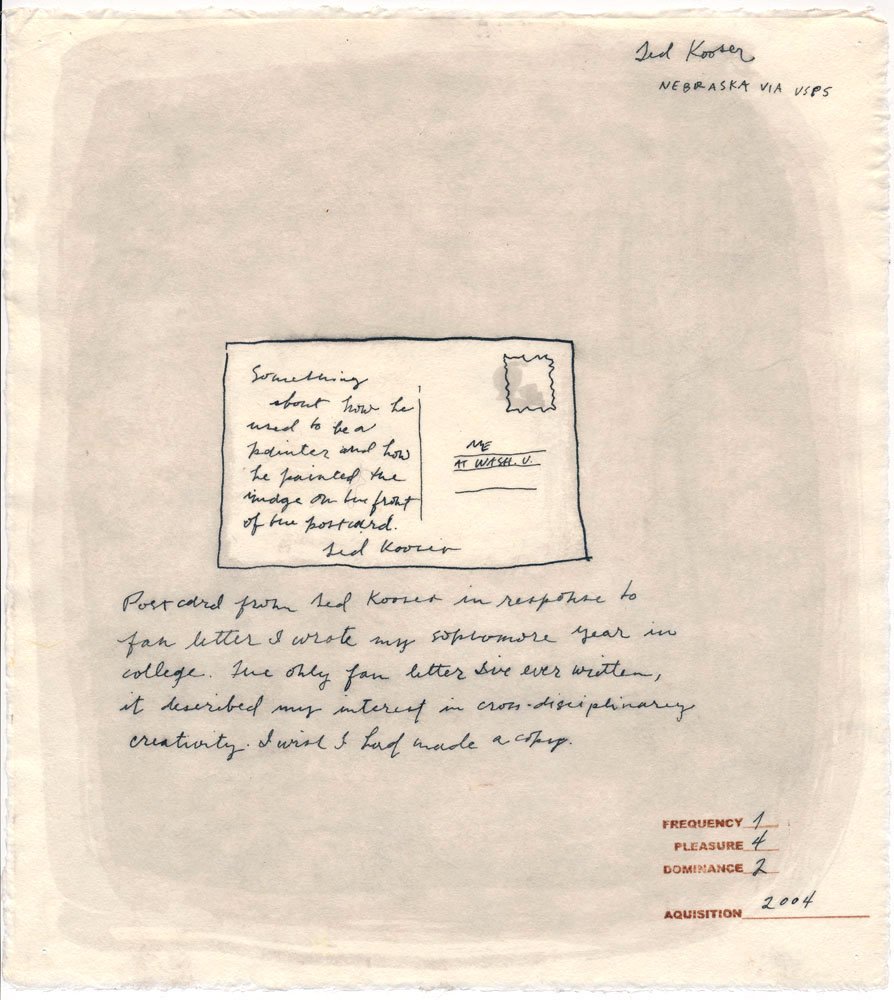 Ted Kooser
NEBRASKA VIA USPS
Something
about how he
used to be a
painter and how
he painted the
image on the front
of the postcard.
Ted Kooser
ME
AT WASH. U.
Postcard from Ted Kooser in response to
fan letter I wrote my sophomore year in
college. The only fan letter I've ever written,
it described my interest in cross-disciplinary
creativity. I wish I had made a copy.
FREQUENCY 1
PLEASURE 4
DOMINANCE 2
AQUISITION 2004